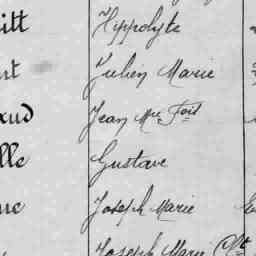 itt Hippolyte
rt Julien Marie
xud Jean Mie Fois
lle Gustave
ue Joseph Marie
Joseph Marie